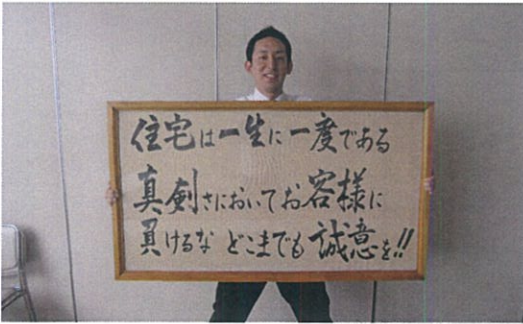 住宅は一生に一度である
真剣さにおいてお客様に
負けるな どこまでも誠意を!!